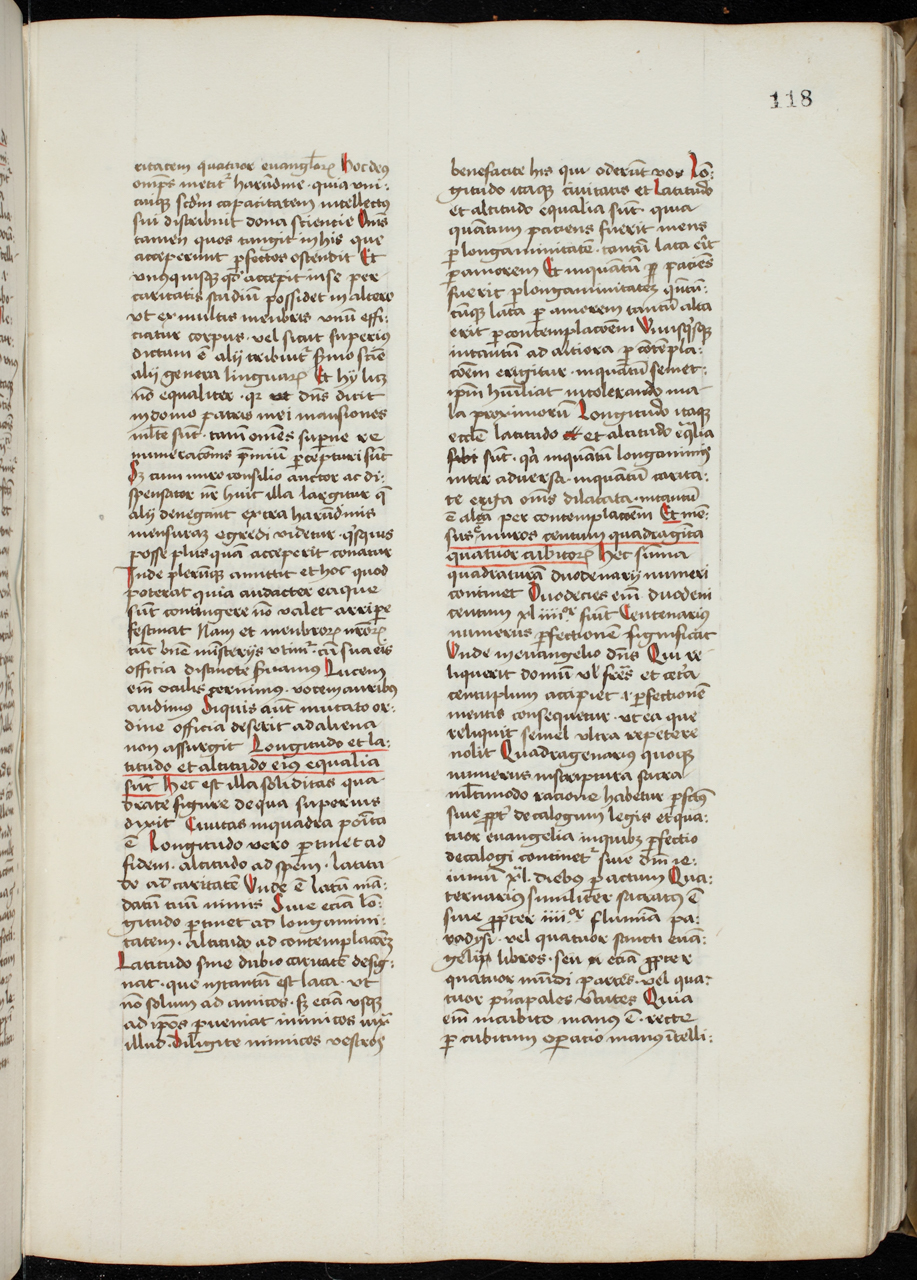 118
ritatem quatuor evangelior̄ Hoc deus
omīps metit᷑ harūdine · quia uni-
cuiqꝫ scd̄m capacitatem intellectus
sui distribuit dona scientie Oīns
tamen quos tangit in his que
acceperunt ꝑfectos ostendit Et
vnusquisqꝫ qd̄ accepit in se per
caritatis studiū possidet in altero
vt ex multis menbris vnū effi-
ciatur corpus · vel sicut superius
dictum ē alij tribuit᷑ sermo sciē
alij genera linguaꝝ Et hij licꝫ
nō equaliter · qꝛ ut dn̄s dicit
in domo patris mei mansiones
mlt̄e sunt · tamē omēs superne re
muneracōnis p̄miū ꝑcepturi sūt
Sꝫ cum miro consilio auctor ac di-
spensator nr̄ huic illa largitur q̄
alij denegant extra harūdinis
mensuraꝫ egredi videtur · qⁱsquis
posse plus quā acceperit conatur
Inde plerūqꝫ amittit et hoc quod
poterat quia audacter ea que
sūt contingere nō valet arripe
festinat Nam et menbroꝝ nr̄oꝝ
tūc bn̄e misterijs vtimᷣ · cū sua eis
officia distincte ẜuamus Lucem
em̄ oculis cernimus · vocem auribus
audimus Siquis aūt mutato or-
dine officia deserit ad aliena
non assurgit Longitudo et la-
titudo et altitudo eiꝰ equalia
sunt Hec est illa soliditas qua
drate figure de qua superius
dixit Ciuitas in quadra posita
ē Longitudo vero ꝑtinet ad
fidem · altitudo ad spem · latitu
do ad caritatē Vnde ē latū mā-
datū tuū nimis Siue eciā lō-
gitudo ꝑtinet ad longanimi-
tatem · altitudo ad contemplacōeꝫ
Latitudo sine dubio caritatē desig-
nat · que in tantū est lata · vt
nō solum ad amicos · sꝫ eciā vsqꝫ
ad ip̄os ꝑueniat inimicos iuxᵃ
illud · Diligite inimicos vestros
benefacite his qui oderūt vos Lō-
gitudo itaqꝫ ciuitatis et latitudo
et altitudo equalia sūt · quia
quātum paciens fuerit mens
ꝑ longanimitatē · tantū lata erit
ꝑ amorem Et in quātū ꝑ paciēs
fuerit ꝑ longanimitatem qntū-
cūqꝫ lata ꝑ amorem tantū alta
erit ꝑ contemplacōem Vnusqⁱsqꝫ
intantū ad altiora ꝑ cōtēpla-
cōem erigitur · inquātū semet-
ipm̄ humiliat in tolerando ma-
la proximorū Longitudo itaqꝫ
ecclīe latitudo et altitudo eqᵃlia
sibi sunt · qᵃ inquātū longanimis
inter aduersa · inquātū carita-
te erga oīns dilatata · intantū
ē alta per contemplacōem Et men-
sus ē muros centum quadraginta
quatuor cubitoꝝ Hec sūma
quadraturā duodenarij numeri
continet Duodecies em̄ duodeni
centum xliiijᵒʳ fiūt Centenarius
numerus ꝑfectionē significat
Vnde in euangelio dn̄s Qui re-
liquerit domū vl̓ frēs et cetᵃ
centuplum accipiet · i · ꝑfectionē
mentis consequetur · vt ea que
reliquit semel vltra repetere
nolit Quadragenarius quoqꝫ
numerus in scriptura sacra
ml̄timodo racione habetur ꝑfcūs
siue ꝓpt̓ decalogum legis et qua-
tuor euangelia in quibꝫ ꝑfectio
decalogi continet᷑ siue dn̄i ie-
iuniū xl · diebus ꝑactum Qua-
ternarius similiter sacratus ē
siue ꝓpter iiijᵒʳ flumīa pa-
radysi · vel quatuor sancti euā-
gelij libros · seu eciā ꝓpter
quatuor mūdi partes · vel qua-
tuor pⁱncipales v̓tutes Quia
em̄ in cubito manus ē · recte
ꝑ cubitum oꝑatio manꝰ ītelli-